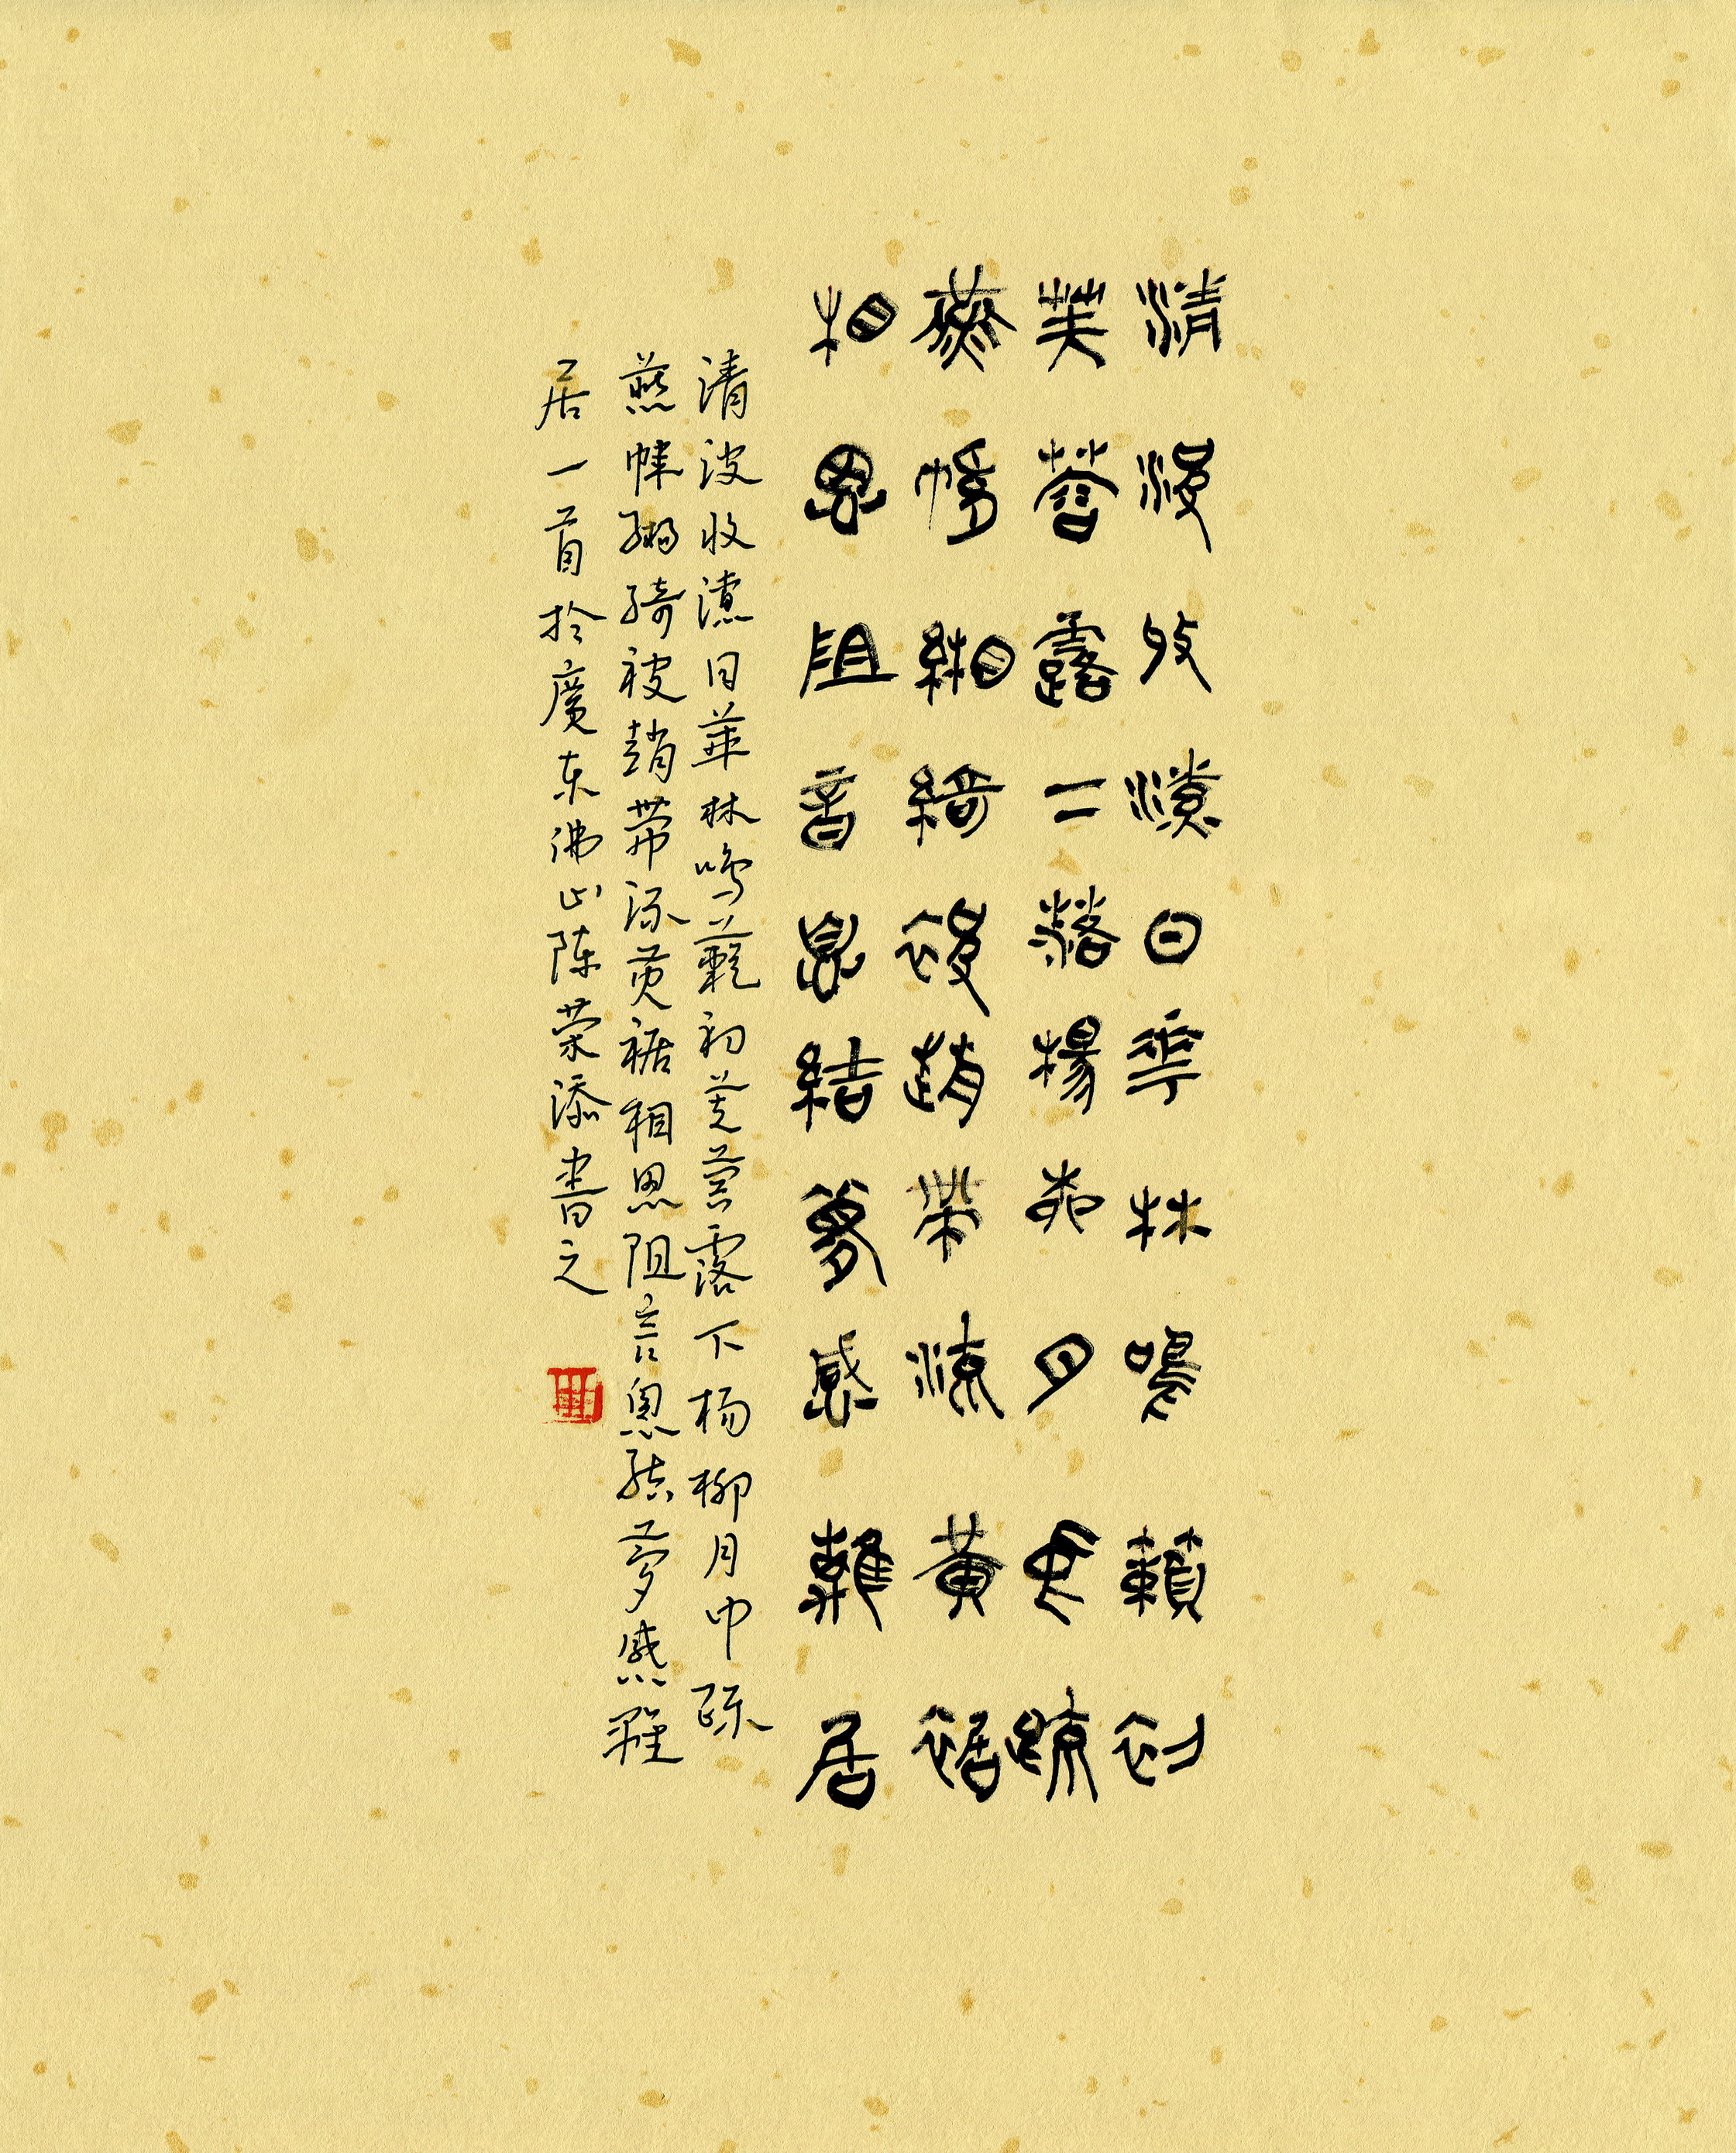 清波收潦日華林鳴籟初
芙蓉露下落楊柳月中疏
燕幃緗綺被趙帶流黃裾
相思阻音息結夢感離居
清波收潦日華林鳴籟初芙蓉露下杨柳月中疏
燕幃緗綺被趙帶流黄裾相思阻言息結夢感離
居一首於廣东佛山陈荣添書之